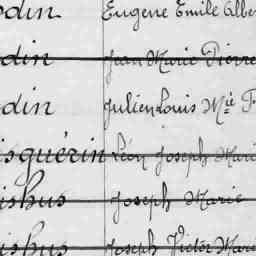 odin Eugene Emile Albe
din Jean Marie Pierre
din Julien Louis Mie F
isguérin Léon Joseph Mari
ishus Joseph Marie
ishus Joseph Victor Mari